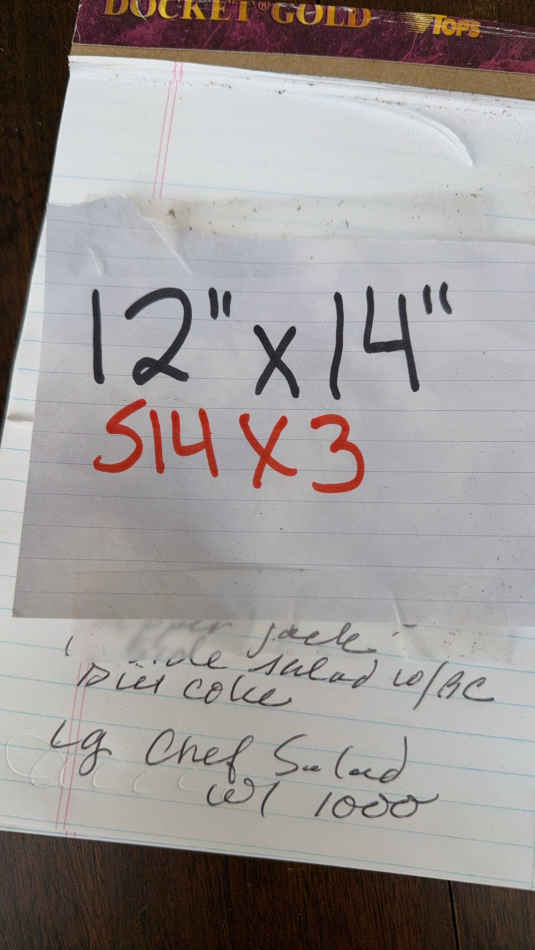 DOCKET® GOLD TOPS
12" x 14"
S14 X 3
Jack
salad w/BC
Diet coke
Lg Chef Salad
w/ 1000